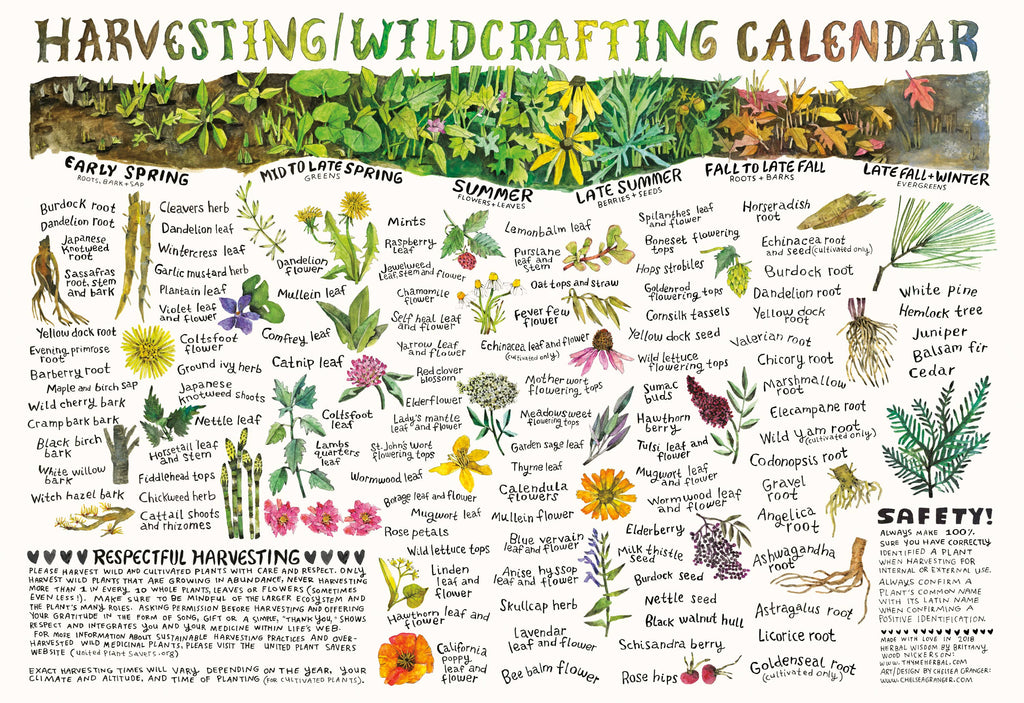 HARVESTING/WILDCRAFTING CALENDAR
EARLY SPRING
ROOTS, BARK + SAP
MID TO LATE SPRING
GREENS
SUMMER
FLOWERS + LEAVES
LATE SUMMER
BERRIES + SEEDS
FALL TO LATE FALL
ROOTS + BARKS
LATE FALL + WINTER
EVERGREENS
Burdock root
Dandelion root
Japanese
Knotweed
root
Sassafras
root, stem
and bark
Yellow dock root
Evening primrose
root
Barberry root
Maple and birch sap
Wild cherry bark
Cramp bark bark
Black birch
bark
White willow
bark
Witch hazel bark
Cleavers herb
Dandelion leaf
Wintercress leaf
Garlic mustard herb
Plantain leaf
Violet leaf
and flower
Coltsfoot
flower
Ground ivy herb
Japanese
Knotweed shoots
Nettle leaf
Horsetail leaf
and stem
Fiddlehead tops
Chickweed herb
Cattail shoots
and rhizomes
Dandelion
flower
Mullein leaf
Comfrey leaf
Catnip leaf
Coltsfoot
leaf
Lambs
quarters
leaf
Mints
Raspberry
leaf
Jewelweed
leaf, stem and flower
Chamomile
flower
Self heal leaf
and flower
Yarrow leaf
and flower
Red clover
blossom
Elderflower
Lady's mantle
leaf and flower
St. John's wort
flowering tops
Wormwood leaf
Borage leaf and flower
Mugwort leaf
Rose petals
Wild lettuce tops
Linden
leaf and
flower
Hawthorn leaf and
flower
California
poppy
leaf and
flower
Lemonbalm leaf
Purslane
leaf and
stem
Oat tops and straw
Feverfew
flower
Echinacea leaf and flower
(cultivated only)
Motherwort
flowering tops
Meadowsweet
flowering tops
Garden sage leaf
Thyme leaf
Calendula
flowers
Mullein flower
Blue vervain
leaf and flower
Anise hyssop
leaf and flower
Skullcap herb
Lavendar
leaf and flower
Bee balm flower
Spilanthes leaf
and flower
Boneset flowering
tops
Hops strobiles
Goldenrod
flowering tops
Cornsilk tassels
Yellow dock seed
Wild lettuce
flowering tops
Sumac
buds
Hawthorn
berry
Tulsi leaf and
flower
Mugwort leaf
and flower
Wormwood leaf
and flower
Elderberry
Milk thistle
seed
Burdock seed
Nettle seed
Black walnut hull
Schisandra berry
Rose hips
Horseradish
root
Echinacea root
and seed (cultivated only)
Burdock root
Dandelion root
Yellow dock
root
Valerian root
Chicory root
Marshmallow
root
Elecampane root
Wild yam root
(cultivated only)
Codonopsis root
Gravel
root
Angelica
root
Ashwagandha
root
Astragalus root
Licorice root
Goldenseal root
(cultivated only)
White pine
Hemlock tree
Juniper
Balsam fir
Cedar
RESPECTFUL HARVESTING
PLEASE HARVEST WILD AND CULTIVATED PLANTS WITH CARE AND RESPECT. ONLY
HARVEST WILD PLANTS THAT ARE GROWING IN ABUNDANCE, NEVER HARVESTING
MORE THAN 1 IN EVERY 10 WHOLE PLANTS, LEAVES OR FLOWERS (SOMETIMES
EVEN LESS!). MAKE SURE TO BE MINDFUL OF THE LARGER ECOSYSTEM AND
THE PLANT'S MANY ROLES. ASKING PERMISSION BEFORE HARVESTING AND OFFERING
YOUR GRATITUDE IN THE FORM OF SONG, GIFT OR A SIMPLE, "THANK YOU," SHOWS
RESPECT AND INTEGRATES YOU AND YOUR MEDICINE WITHIN LIFE'S WEB.
FOR MORE INFORMATION ABOUT SUSTAINABLE HARVESTING PRACTICES AND OVER-
HARVESTED WILD MEDICINAL PLANTS, PLEASE VISIT THE UNITED PLANT SAVERS
WEBSITE (United Plant Savers.org)
EXACT HARVESTING TIMES WILL VARY, DEPENDING ON THE YEAR, YOUR
CLIMATE AND ALTITUDE, AND TIME OF PLANTING (FOR CULTIVATED PLANTS).
SAFETY!
ALWAYS MAKE 100%
SURE YOU HAVE CORRECTLY
IDENTIFIED A PLANT
WHEN HARVESTING FOR
INTERNAL OR EXTERNAL USE.
ALWAYS CONFIRM A
PLANT'S COMMON NAME
WITH ITS LATIN NAME
WHEN CONFIRMING A
POSITIVE IDENTIFICATION.
MADE WITH LOVE IN 2018
HERBAL WISDOM BY BRITTANY
WOOD NICKERSON:
WWW.THYMEHERBAL.COM
ART/DESIGN BY CHELSEA GRANGER:
WWW.CHELSEAGRANGER.COM